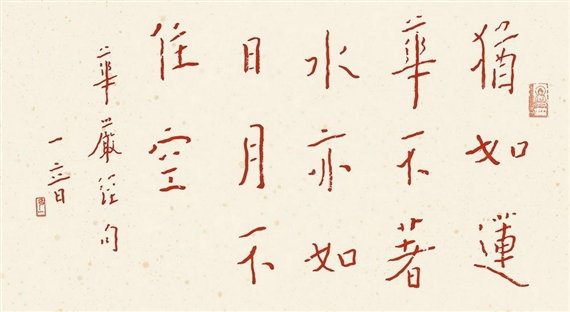 猶如蓮
華不著
水亦如
日月不
住空
華嚴經句
一音